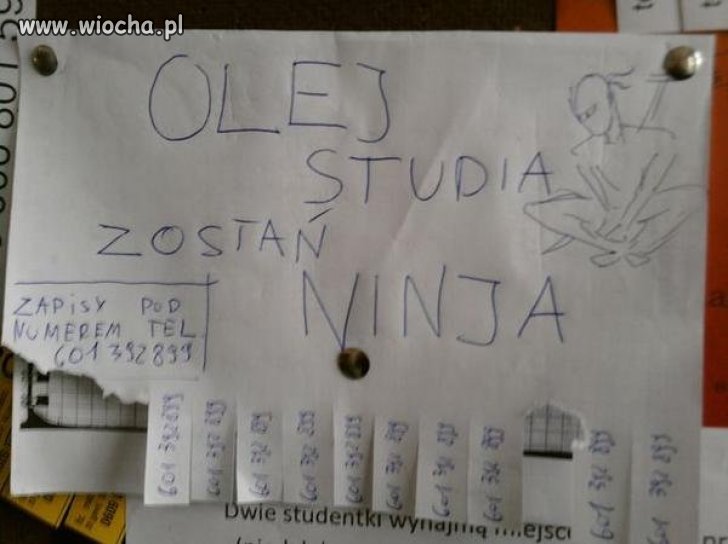 www.wiocha.pl
OLEJ
STUDIA
ZOSTAŃ
NINJA
ZAPISY POD
NUMEREM TEL
601 392 899
601 392 899
601 392 899
601 392 899
601 392 899
601 392 899
601 392 899
601 392 899
601 392 899
601 392 899
601 392 899
Dwie studentki wynajmą